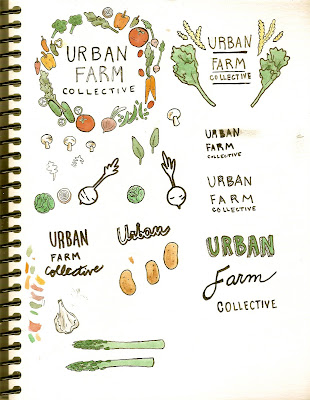 URBAN
FARM
COLLECTIVE
URBAN
FARM
COLLECTIVE
URBAN
FARM
COLLECTIVE
URBAN
FARM
COLLECTIVE
URBAN
FARM
Collective
Urban
URBAN
Farm
COLLECTIVE